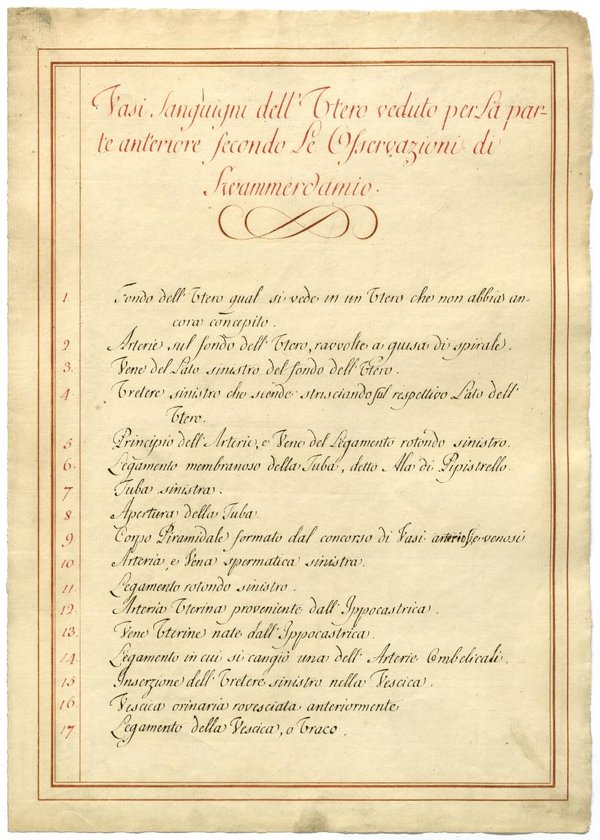 Vasi Sanguigni dell' Utero veduto per la par-
te anteriore secondo le Osservazioni di
Swammerdamio.
1. Fondo dell' Utero qual si vede in un Utero che non abbia an-
cora concepito.
2 Arterie sul fondo dell' Utero, ravvolte a guisa di spirale.
3. Vene del Lato sinistro del fondo dell' Utero.
4 Uretere sinistro che sciende strisciando sul respettivo Lato dell'
Utero.
5 Principio dell' Arterie, e Vene del Legamento rotondo sinistro.
6. Legamento membranoso della Tuba, detto Ala di Pipistrello
7 Tuba sinistra.
8 Apertura della Tuba
9 Corpo Piramidale formato dal concorso di Vasi arteriosi, e venosi
10 Arteria, e Vena spermatica sinistra.
11 Legamento rotondo sinistro.
12. Arteria Uterina proveniente dall' Ippocastrica.
13. Vene Uterine nate dall' Ippocastrica.
14. Legamento in cui si cangiò una dell' Arterie Ombelicali.
15 Inserzione dell' Uretere sinistro nella Vescica.
16. Vescica orinaria rovesciata anteriormente
17 Legamento della Vescica, o Uraco.